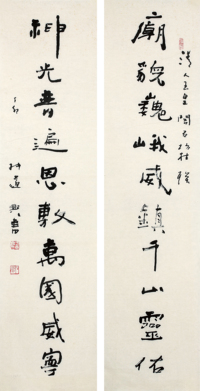 廟貌巍峨威鎮千山靈佑
清人玉皇閣
神光普遍恩敷萬國咸寧